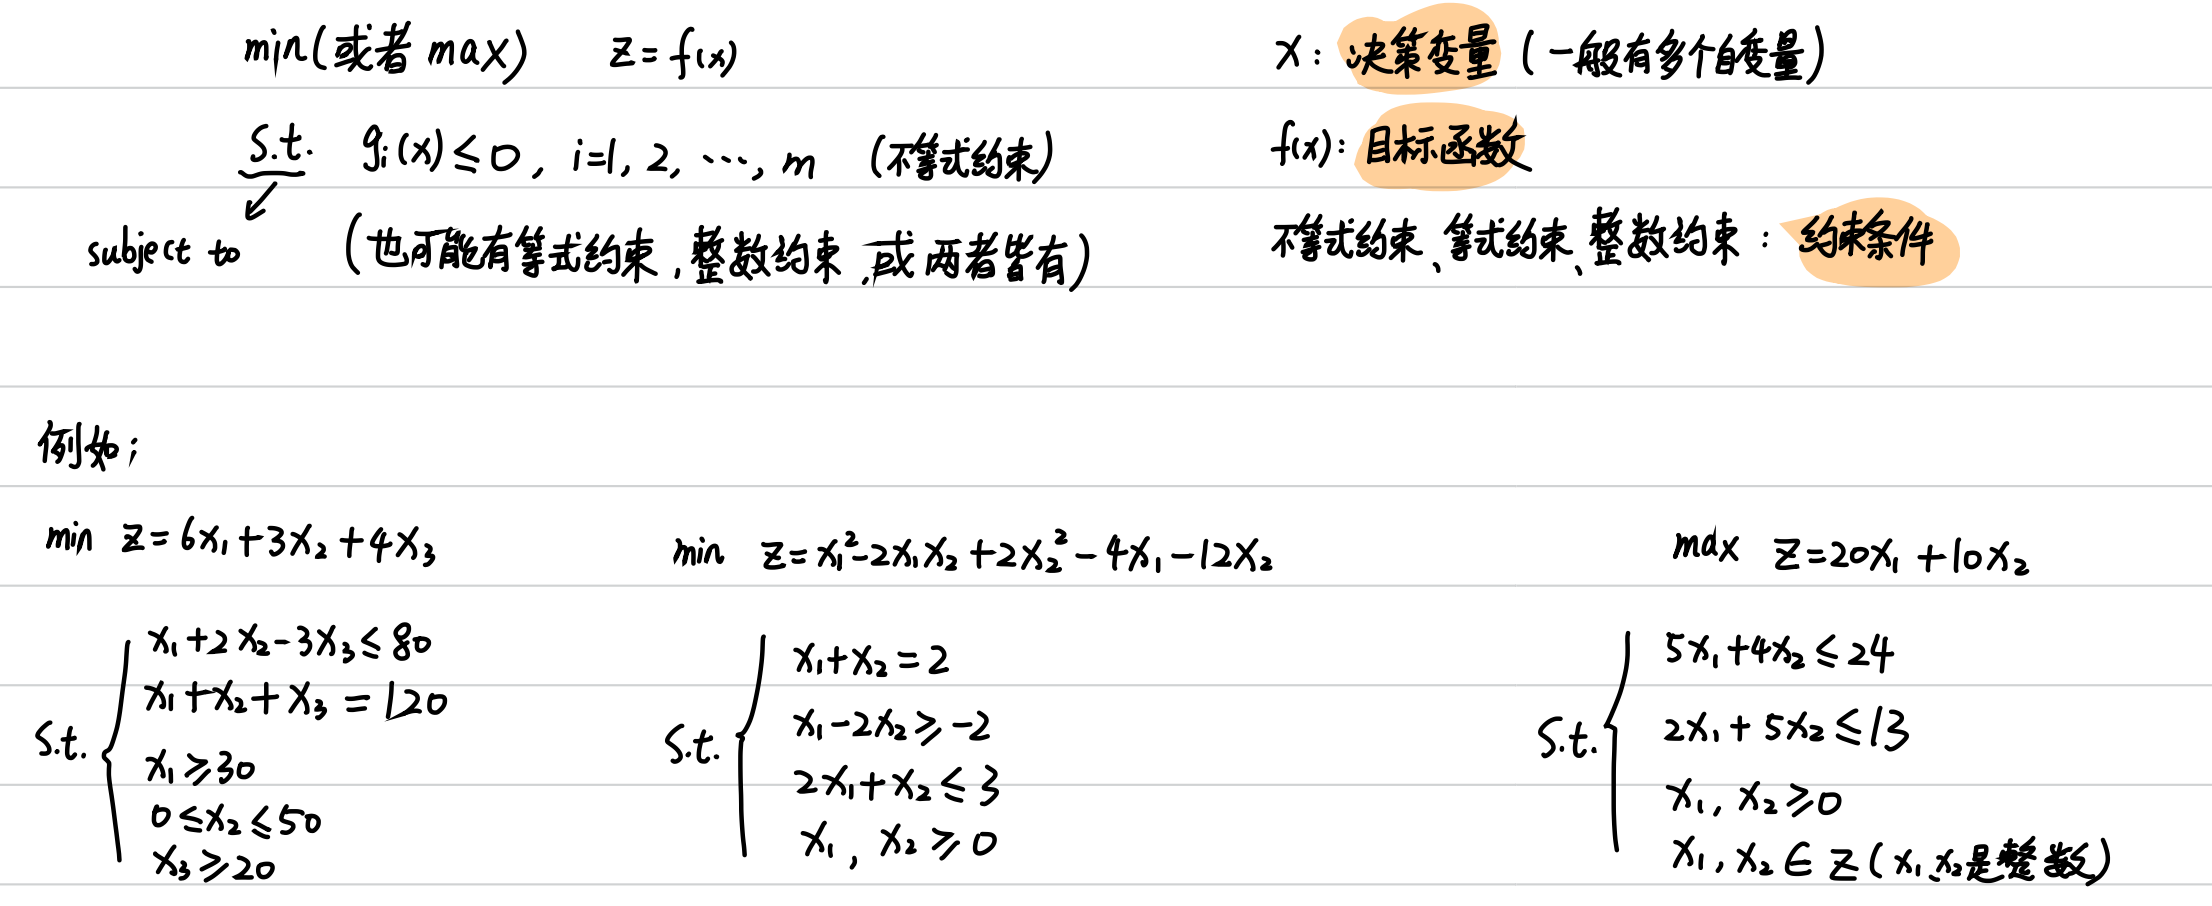 min(或者 max) z=f(x)
s.t. gᵢ(x)≤0, i=1, 2, ⋯, m (不等式约束)
subject to (也可能有等式约束,整数约束,或两者皆有)
x: 决策变量 (一般有多个自变量)
f(x): 目标函数
不等式约束、等式约束、整数约束: 约束条件
例如;
min z=6x₁+3x₂+4x₃
s.t.
x₁+2x₂-3x₃≤80
x₁+x₂+x₃=120
x₁≥30
0≤x₂≤50
x₃≥20
min z=x₁²-2x₁x₂+2x₂²-4x₁-12x₂
s.t.
x₁+x₂=2
x₁-2x₂≥-2
2x₁+x₂≤3
x₁, x₂≥0
max z=20x₁+10x₂
s.t.
5x₁+4x₂≤24
2x₁+5x₂≤13
x₁, x₂≥0
x₁, x₂∈Z(x₁、x₂是整数)